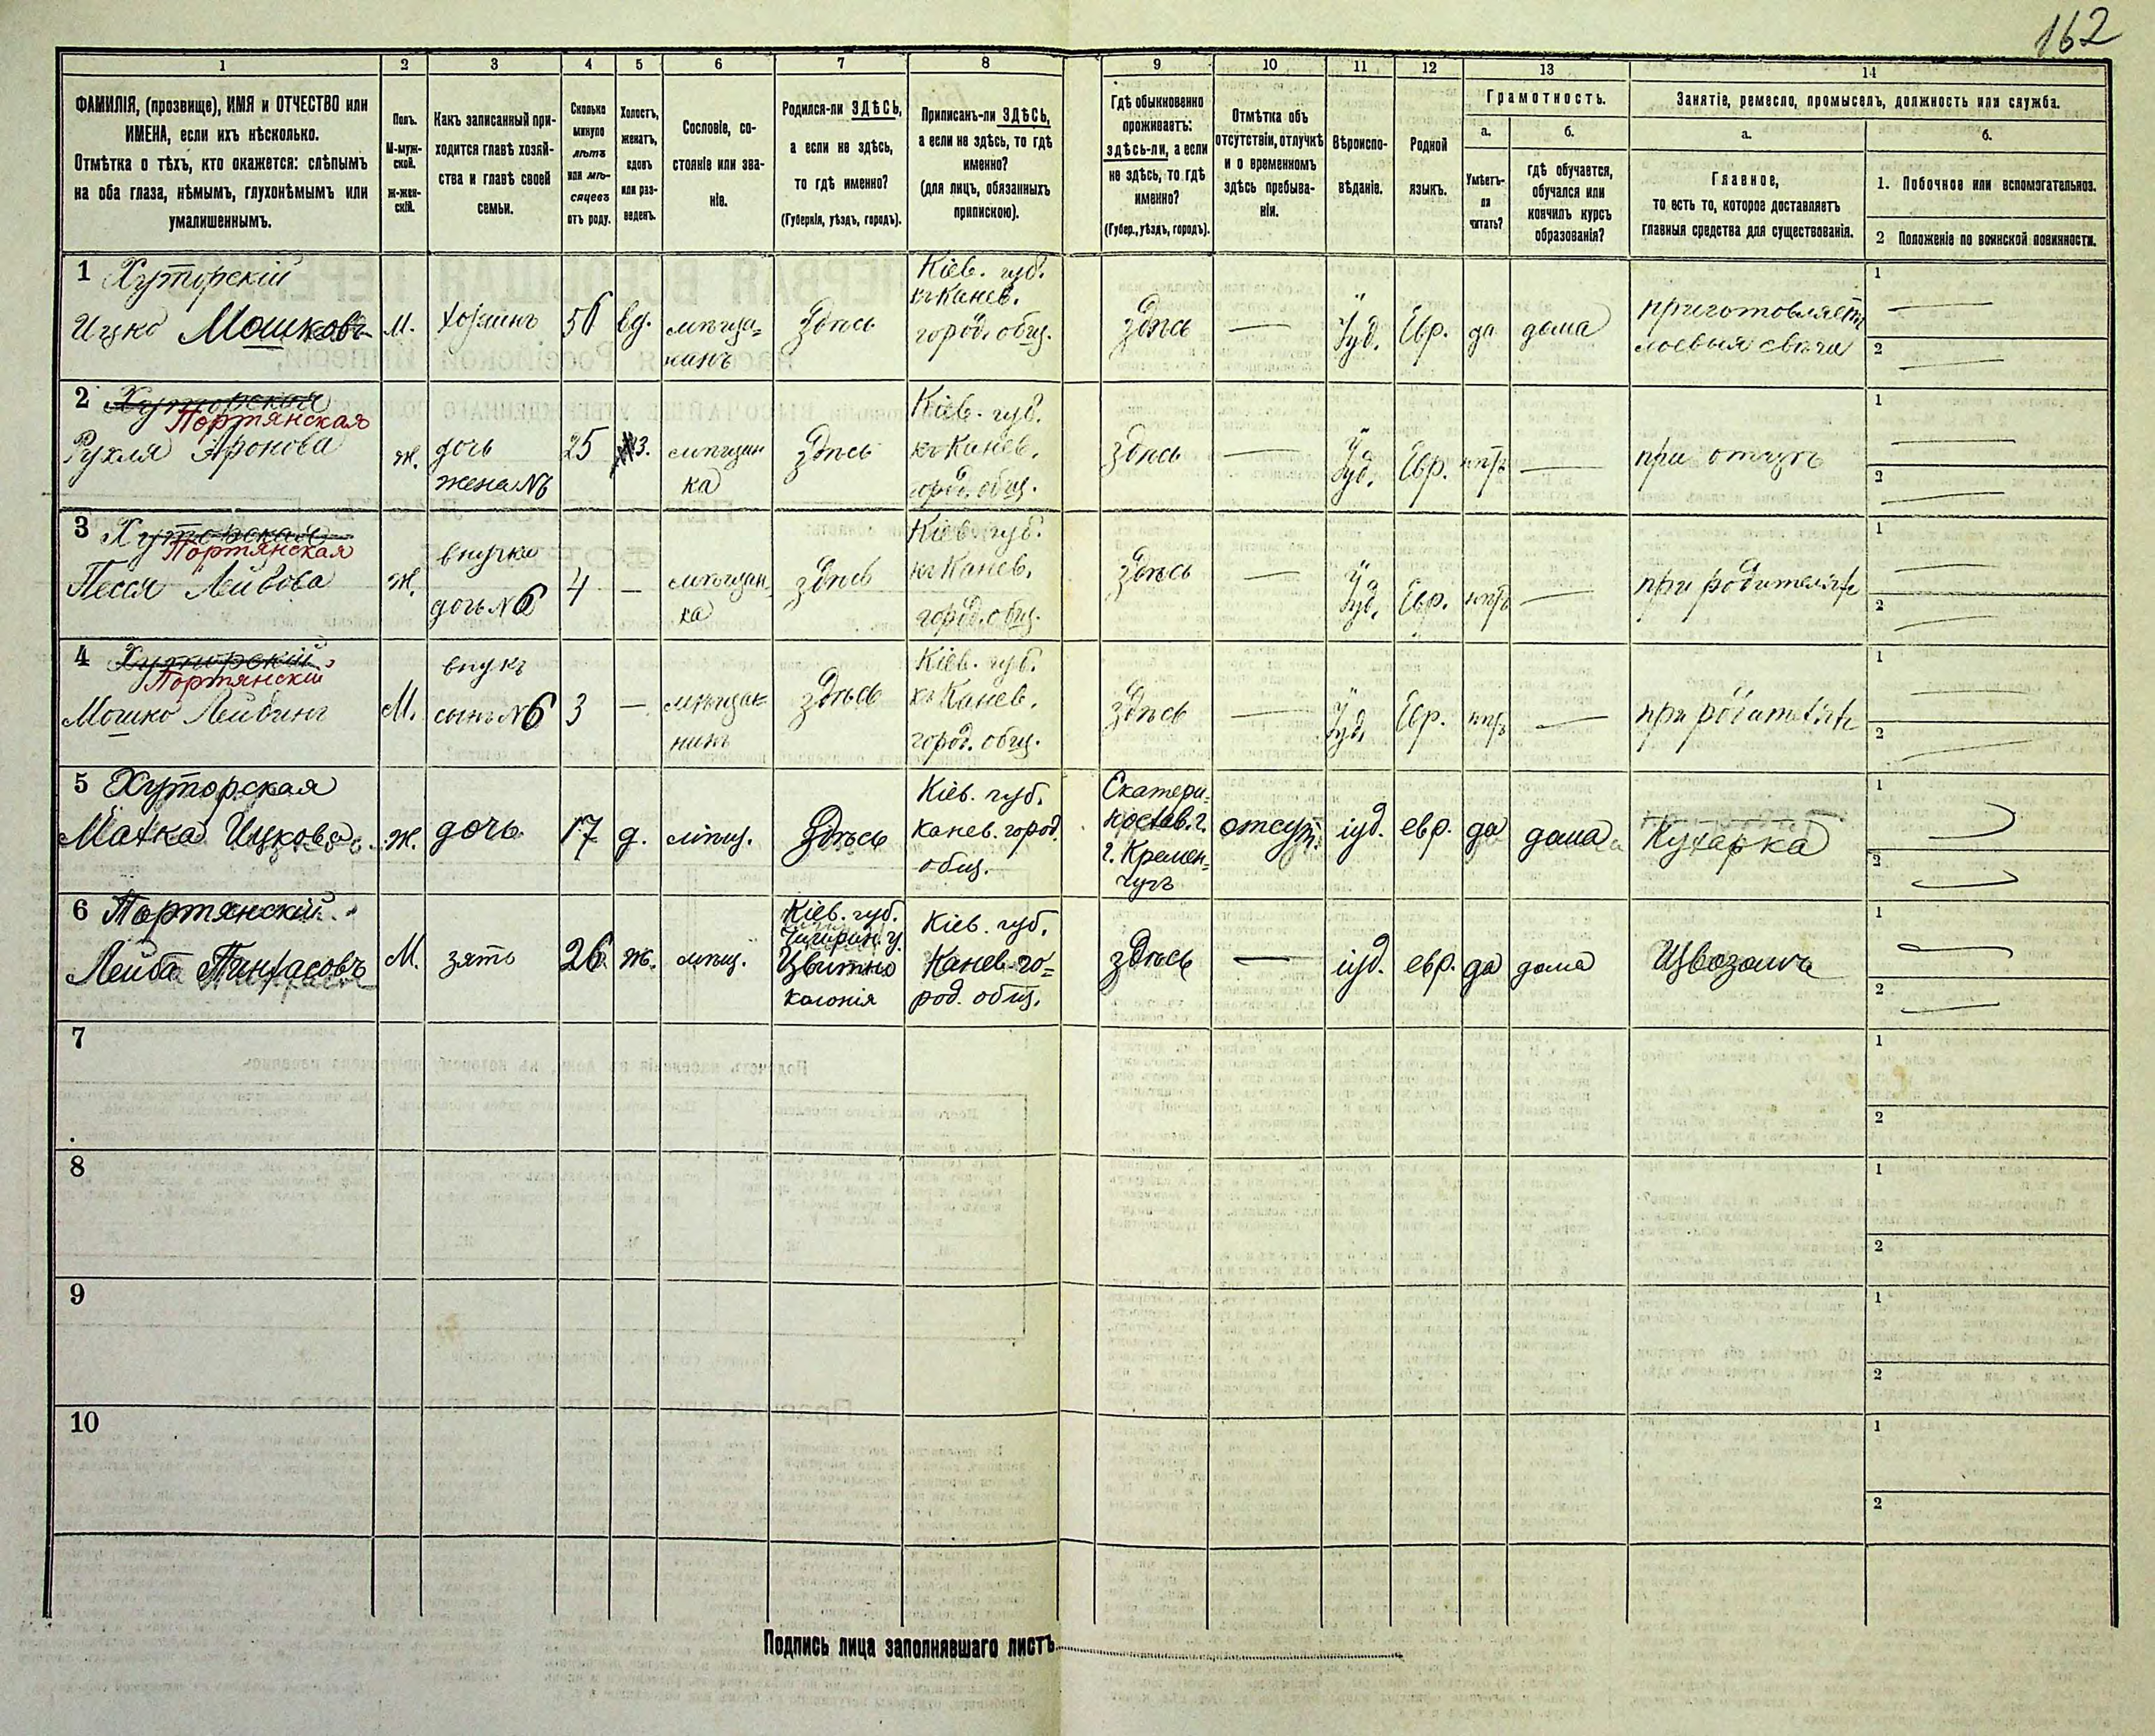 162
1 2 3 4 5 6 7 8 9 10 11 12 13 14
ФАМИЛІЯ, (прозвище), ИМЯ и ОТЧЕСТВО или
ИМЕНА, если ихъ нѣсколько.
Отмѣтка о тѣхъ, кто окажется: слѣпымъ
на оба глаза, нѣмымъ, глухонѣмымъ или
умалишеннымъ.
Полъ.
М-муж-
ской.
Ж-жен-
скій.
Какъ записанный при-
ходится главѣ хозяй-
ства и главѣ своей
семьи.
Сколько
минуло
лѣтъ
или мѣ-
сяцевъ
отъ роду.
Холостъ,
женатъ,
вдовъ
или раз-
веденъ.
Сословіе, со-
стояніе или зва-
ніе.
Родился-ли ЗДѢСЬ,
а если не здѣсь,
то гдѣ именно?
(Губернія, уѣздъ, городъ).
Приписанъ-ли ЗДѢСЬ,
а если не здѣсь, то гдѣ
именно?
(для лицъ, обязанныхъ
припискою).
Гдѣ обыкновенно
проживаетъ:
здѣсь-ли, а если
не здѣсь, то гдѣ
именно?
(Губер., уѣздъ, городъ).
Отмѣтка объ
отсутствіи, отлучкѣ
и о временномъ
здѣсь пребыва-
ніи.
Вѣроиспо-
вѣданіе.
Родной
языкъ.
Грамотность.
а.
Умѣетъ-
ли
читать?
б.
гдѣ обучается,
обучался или
кончилъ курсъ
образованія?
Занятіе, ремесло, промыселъ, должность или служба.
а.
Главное,
то есть то, которое доставляетъ
главныя средства для существованія.
б.
1. Побочное или вспомогательное.
2 Положеніе по воинской повинности.
1 Хуторскій
Ицко Мошковъ
М.
хозяинъ
вд.
мѣща-
нинъ
здѣсь
Кіев. губ.
къ Канев.
город. общ.
здѣсь
—
Іуд.
Евр.
да
дома
приготовляетъ
лоевыя свѣчи
1 —
2 —
2 Хуторская
Портянская
Рухля Аронова
ж.
дочь
жена №
25
з.
мѣщан
ка
здѣсь
Кіев. губ.
къ Канев.
город. общ.
здѣсь
—
Іуд.
Евр.
нѣтъ
—
при отцѣ
1 —
2 —
3 Хуторская
Портянская
Песся Лейбова
Ж.
внучка
дочь №6
4
—
мѣщан
ка
здѣсь
Кіев. губ.
къ Канев.
город. общ.
здѣсь
—
Іуд.
Евр.
нѣтъ
—
при родителяхъ
1 —
2 —
4 Хуторскій
Портянскій
Мошко Лейбинъ
М.
внукъ
сынъ №6
3
—
мѣща-
нинъ
здѣсь
Кіев. губ.
къ Канев.
город. общ.
здѣсь
—
Іуд.
Евр.
нѣтъ
—
при родителяхъ
1 —
2 —
5 Хуторская
Малка Ицкова
ж.
дочь
17
д.
мѣщ.
здѣсь
Кіев. губ.
Канев. город.
общ.
Екатери-
нослав. г.
г. Кремен-
чугъ
отсут.
іуд.
евр.
да
дома
Кухарка
1
2
6 Портянскій
Лейба Пинхасовъ
М.
зять
26
ж.
мѣщ.
Кіев. губ.
Чигирин. у.
колонія
Кіев. губ.
Канев. го-
род. общ.
здѣсь
—
іуд.
евр.
да
дома
1
2
7
1
2
8
1
2
9
1
2
10
1
2
Подпись лица заполнявшаго листъ